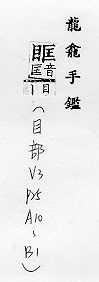 龍龕手鑑
眶
匡音
丨目
(目部
V3
P25
A10、
B1)